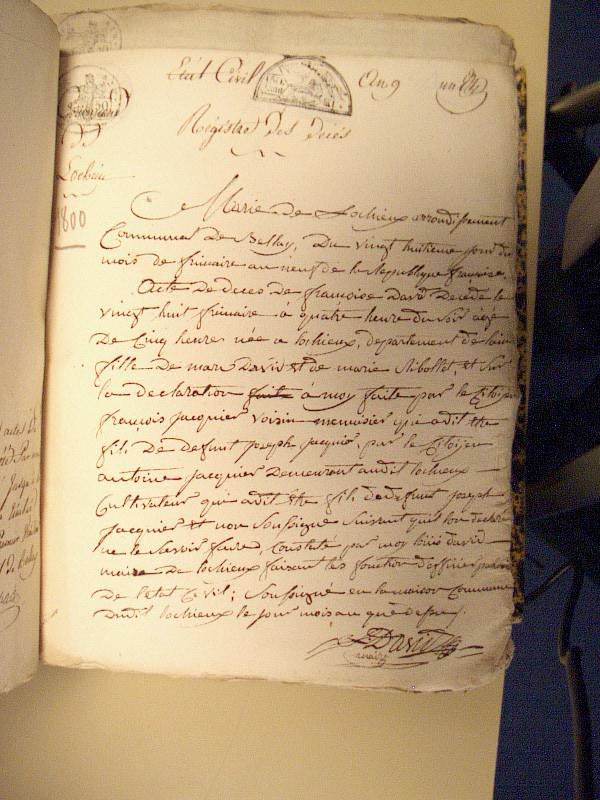 Etat Civil An 9
Registre des decés
de
Lochieu
1800
Marie de Lochieux arrondissement
Communal de Belley, Du vingt huitieme jour du
mois de frimaire an neuf de la Republique francoise,
Acte De deces De francoise David Decedé le
vingt huit frimaire à quatre heure du soir agé
De Cinq heures née a lochieux, departement de lain
fille De marc David et de marie Ribollet, et sur
la declaration faite à moy faite par le Citoyen
françois jacquier voisin menuisier qui a dit etre
fils De defunt joseph jacquier, par le Citoyen
antoine jacquier Demeurant audit lochieux
Cultivateur qui a dit etre fils de defunt joseph
jacquier et non Soussigné suivant quil ont declaré
ne le Savoir faire, Constaté par moy louis david
maire de lochieux faisant les fonction dofficier public
De letat Civil; Soussigné en la maison Commune
Dudit lochieux le jour mois an que dessus.
David
maire